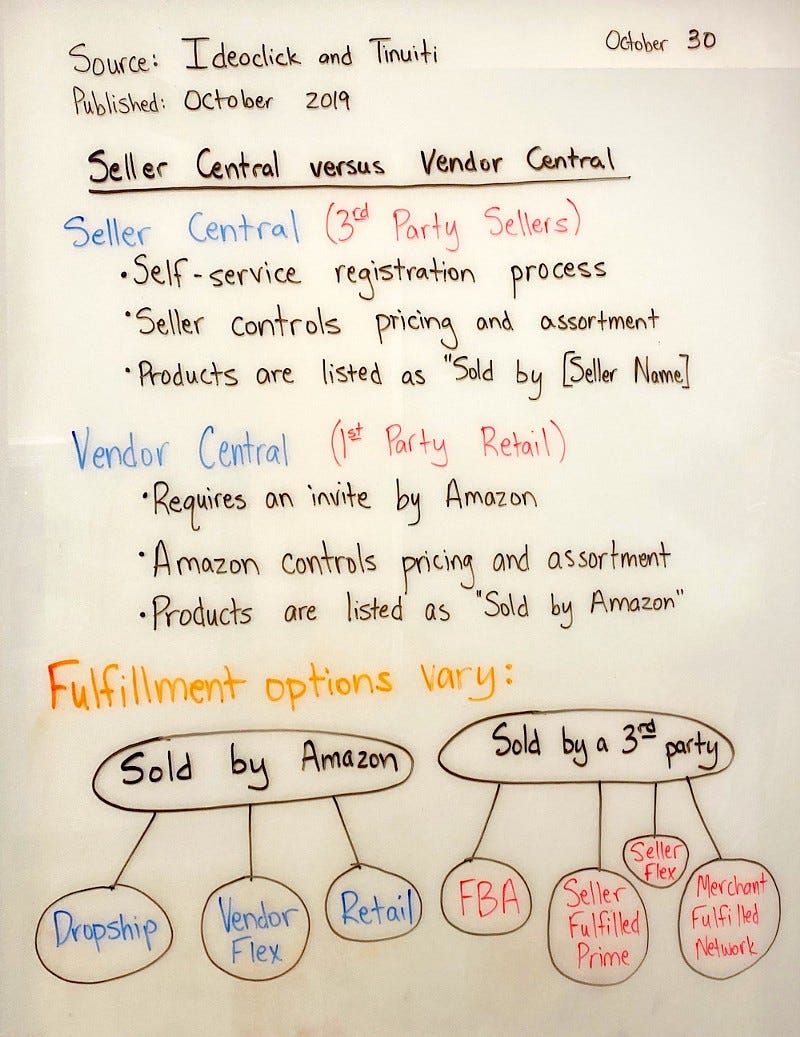 Source: Ideoclick and Tinuiti
October 30
Published: October 2019
Seller Central versus Vendor Central
Seller Central (3rd Party Sellers)
•Self-service registration process
•Seller controls pricing and assortment
•Products are listed as "Sold by [Seller Name]
Vendor Central (1st Party Retail)
•Requires an invite by Amazon
•Amazon controls pricing and assortment
•Products are listed as "Sold by Amazon"
Fulfillment options vary:
Sold by Amazon
Dropship
Vendor
Flex
Retail
Sold by a 3rd party
FBA
Seller
Fulfilled
Prime
Seller
Flex
Merchant
Fulfilled
Network